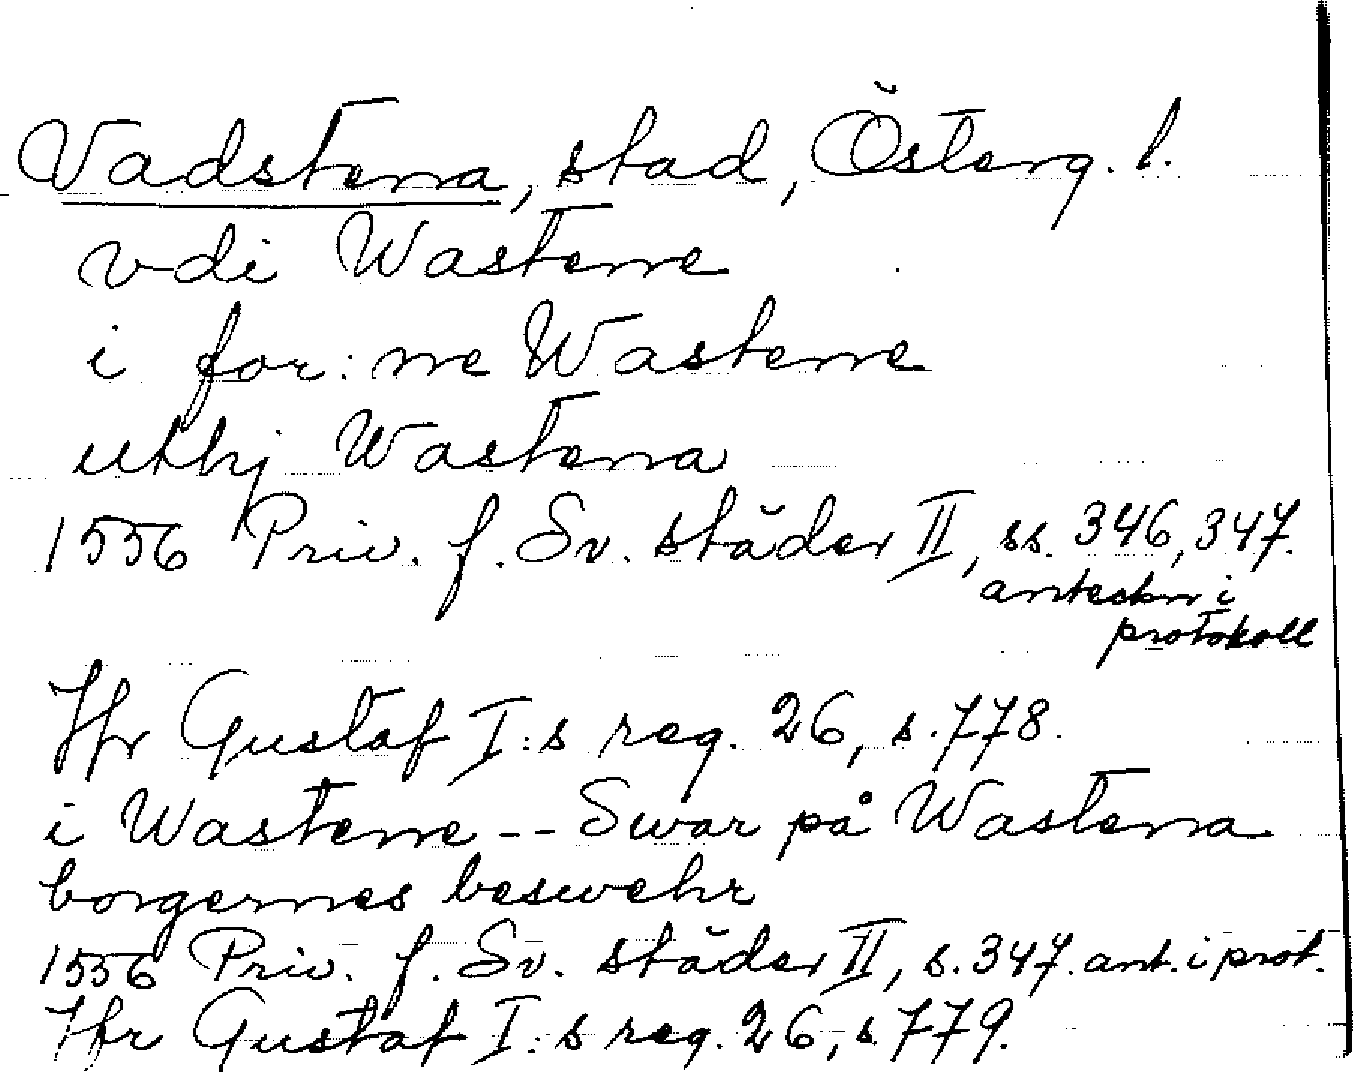 Vadstena, stad, Österg. l.
vdi Wastene
i for:ne Wastene
utthj Wastena
1556 Priv. f. Sv. städer II, ss. 346, 347.
anteckn i
protokoll
Jfr Gustaf I:s reg. 26, s. 778.
i Wastene -- Swar på Wastena
borgernes beswehr
1556 Priv. f. Sv. städer II, s. 347. ant. i prot.
Jfr Gustaf I:s reg. 26, s. 779.